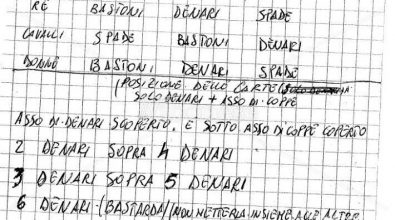 RE BASTONI DENARI SPADE
CAVALLI SPADE BASTONI DENARI
DONNE BASTONI DENARI SPADE
(POSIZIONE DELLE CARTE
SOLO DENARI + ASSO DI COPPE
ASSO DI DENARI SCOPERTO, E SOTTO ASSO DI COPPE COPERTO
2 DENARI SOPRA 4 DENARI
3 DENARI SOPRA 5 DENARI
6 DENARI-(BASTARDA)(NON METTERLA INSIEME ALLE ALTRE